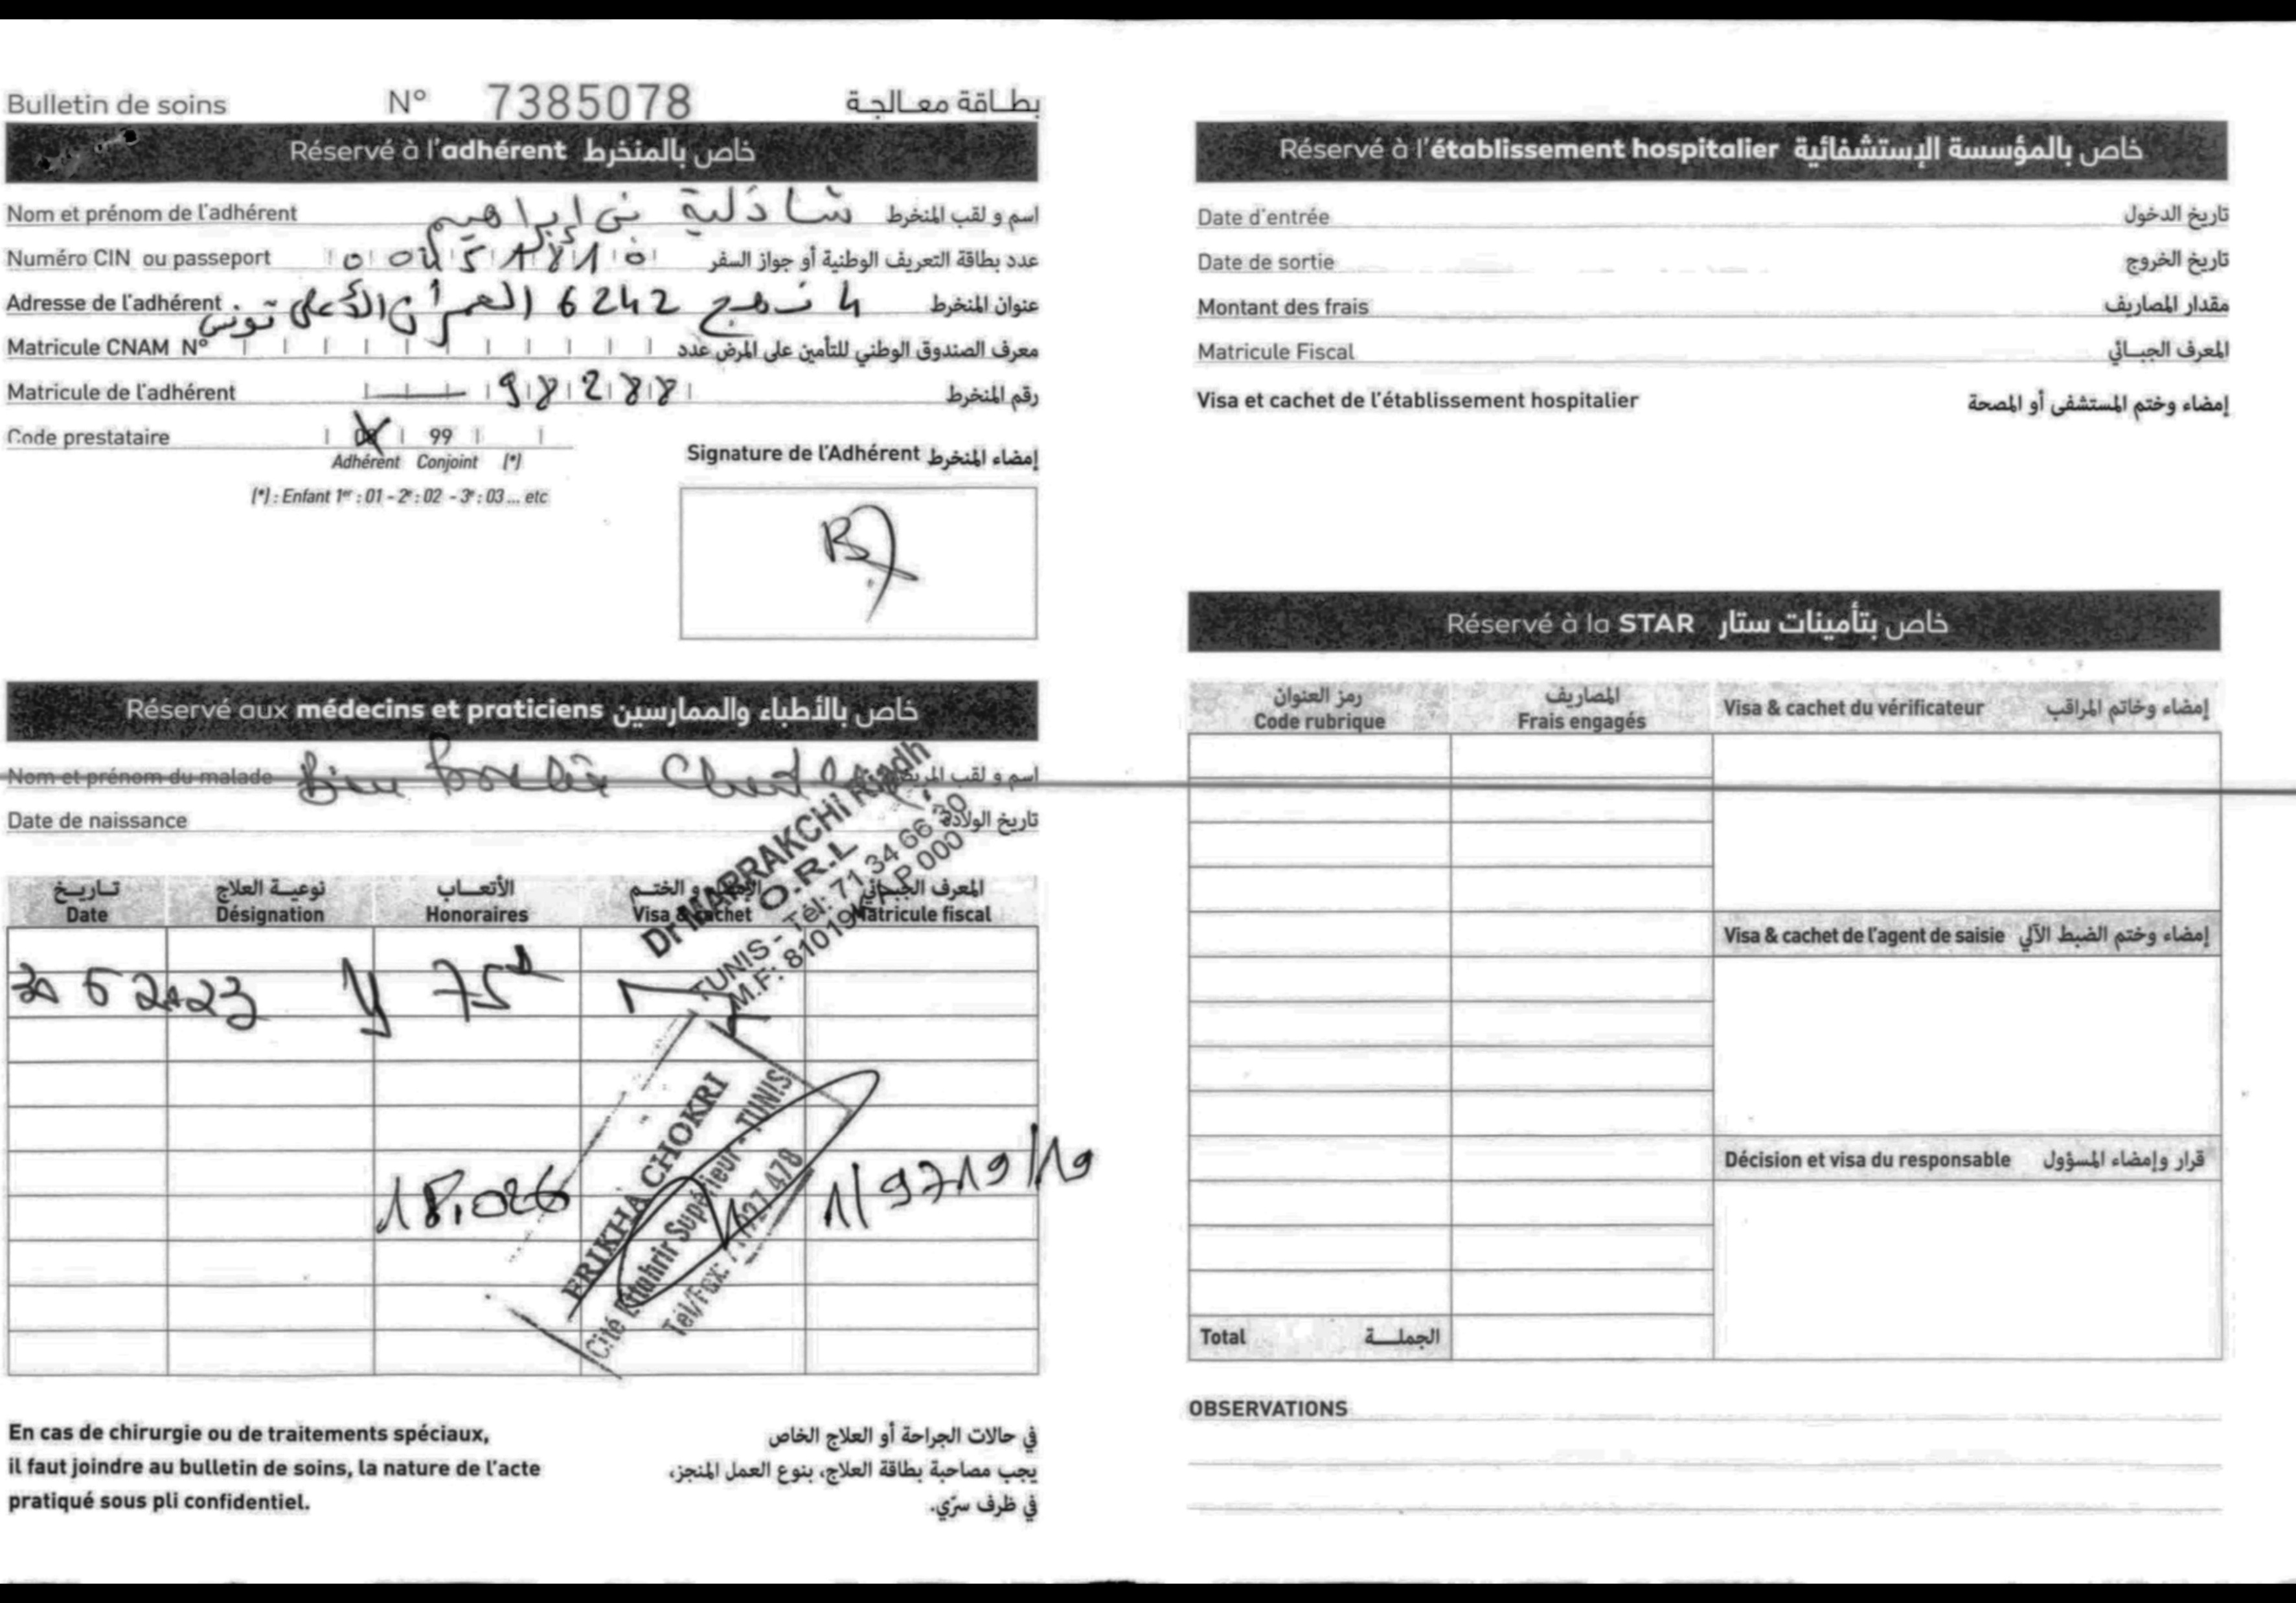 Bulletin de soins N° 7385078 بطاقة معالجة
Réservé à l'adhérent خاص بالمنخرط
Nom et prénom de l'adhérent شاذلية بن إبراهيم اسم و لقب المنخرط
Numéro CIN ou passeport عدد بطاقة التعريف الوطنية أو جواز السفر
Adresse de l'adhérent 4 نهج 6242 العمران الأعلى تونس عنوان المنخرط
Matricule CNAM N° معرف الصندوق الوطني للتأمين على المرض عدد
Matricule de l'adhérent 98288 رقم المنخرط
Code prestataire 99
Adhérent Conjoint (*)
(*) : Enfant 1er : 01 - 2e : 02 - 3e : 03 ... etc
Signature de l'Adhérent إمضاء المنخرط
Réservé aux médecins et praticiens خاص بالأطباء والممارسين
Nom et prénom du malade اسم و لقب المريض
Date de naissance تاريخ الولادة
Dr MARRAKCHI Riadh
O.R.L
TUNIS - Tél: 71 34 66 30
تـاريـــخ نوعيــة العلاج الأتعـــاب الإمضاء و الختـم المعرف الجبـائي
Date Désignation Honoraires Visa & cachet Matricule fiscal
75
18,026 1/9719/19
FRIKHA CHOKRI
Cité Ettahrir Supérieur - TUNIS
En cas de chirurgie ou de traitements spéciaux,
il faut joindre au bulletin de soins, la nature de l'acte
pratiqué sous pli confidentiel.
في حالات الجراحة أو العلاج الخاص
يجب مصاحبة بطاقة العلاج، بنوع العمل المنجز،
في ظرف سرّي.
Réservé à l'établissement hospitalier خاص بالمؤسسة الإستشفائية
Date d'entrée تاريخ الدخول
Date de sortie تاريخ الخروج
Montant des frais مقدار المصاريف
Matricule Fiscal المعرف الجبـائي
Visa et cachet de l'établissement hospitalier إمضاء وختم المستشفى أو المصحة
Réservé à la STAR خاص بتأمينات ستار
رمز العنوان المصاريف
Code rubrique Frais engagés Visa & cachet du vérificateur إمضاء وخاتم المراقب
Visa & cachet de l'agent de saisie إمضاء وختم الضبط الآلي
Décision et visa du responsable قرار وإمضاء المسؤول
Total الجملـــة
OBSERVATIONS